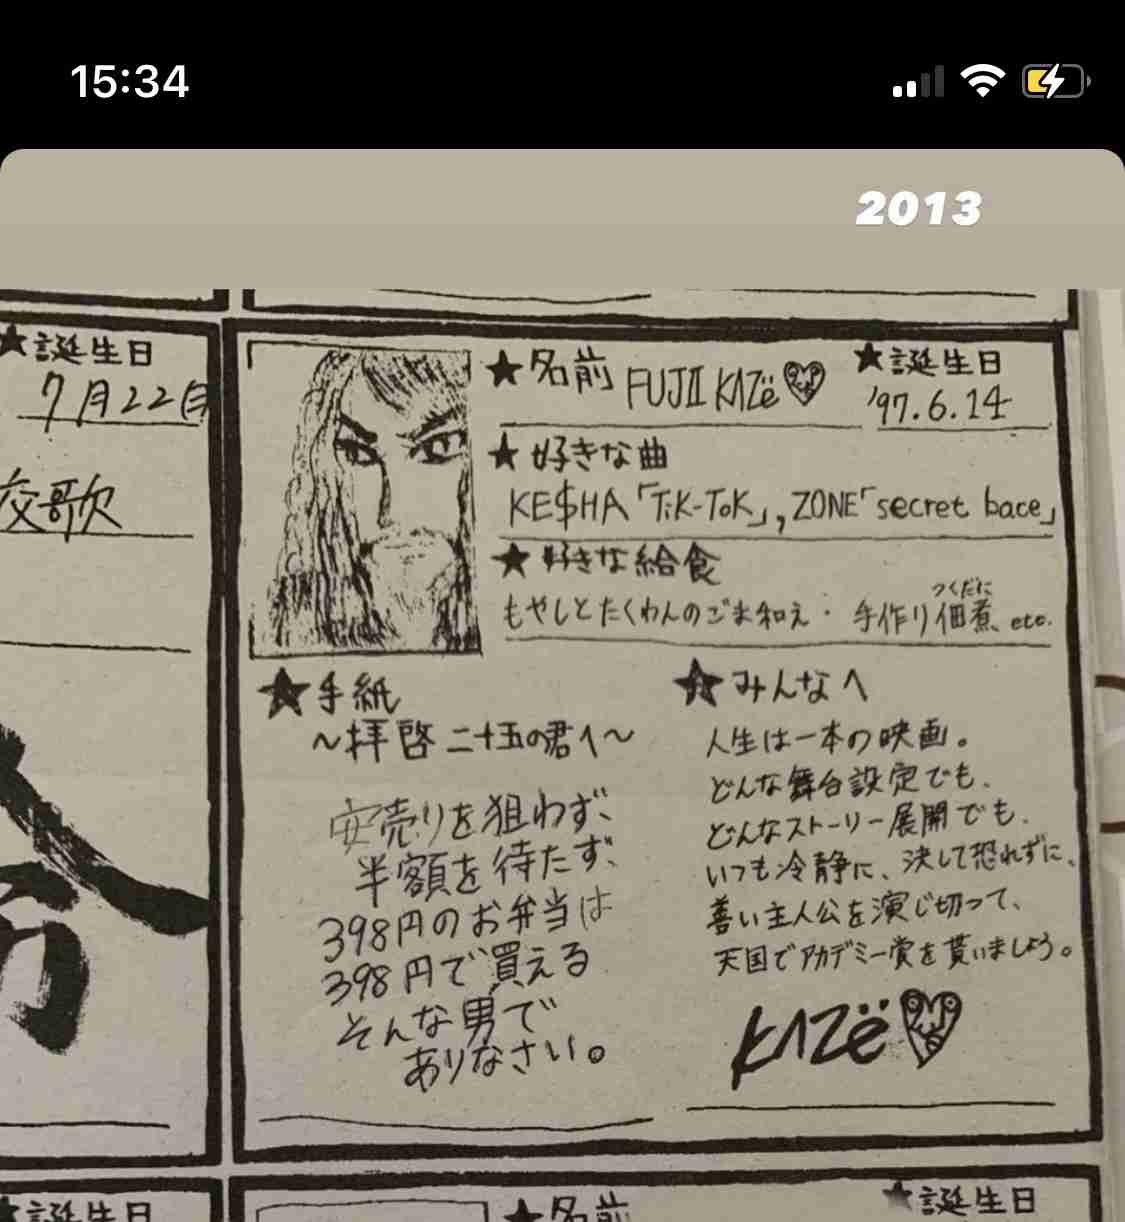 15:34
2013
★誕生日
7月22日
夜歌
★名前 FUJII KAZë
★誕生日
'97.6.14
★好きな曲
KE$HA「TiK-ToK」, ZONE「secret bace」
★好きな給食
もやしとたくわんのごま和え・手作り佃煮 etc.
つくだに
★手紙
〜拝啓 二十五の君へ〜
安売りを狙わず、
半額を待たず、
398円のお弁当は
398円で買える
そんな男で
ありなさい。
★みんなへ
人生は一本の映画。
どんな舞台設定でも、
どんなストーリー展開でも、
いつも冷静に、決して恐れずに、
善い主人公を演じ切って、
天国でアカデミー賞を貰いましょう。
KAZë
★誕生日
★名前
★誕生日